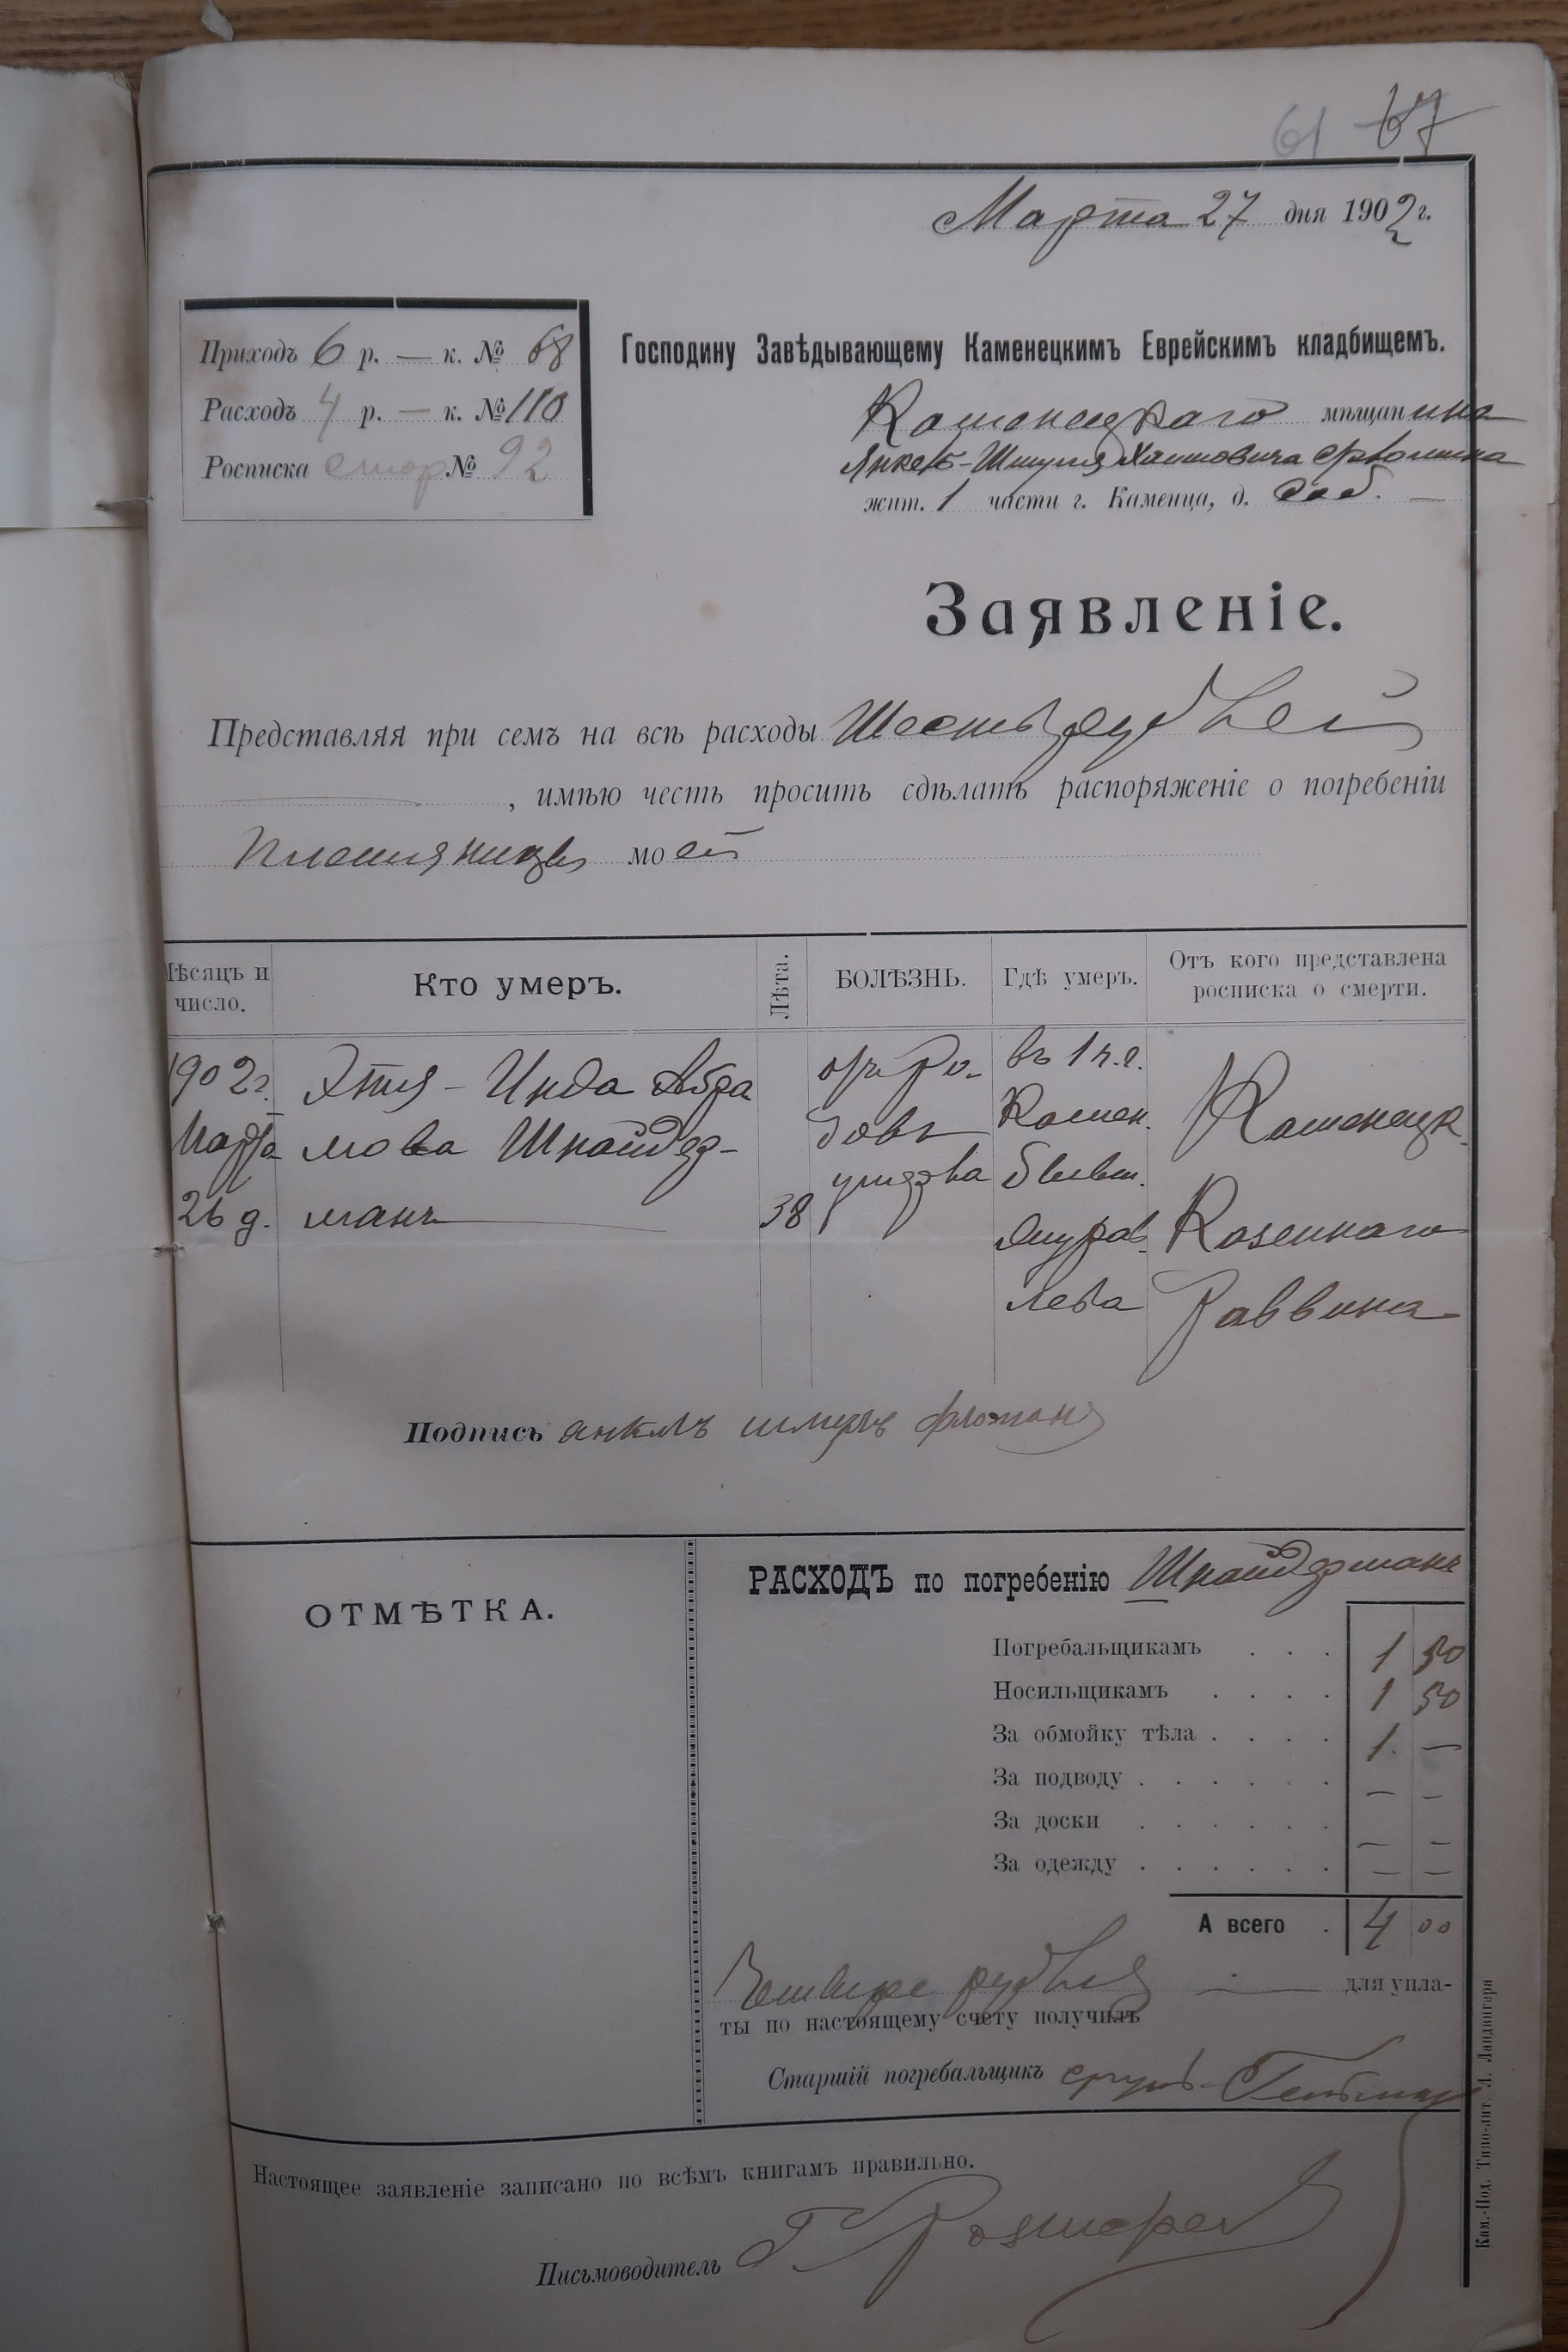 61 67
Марта 27 дня 1902 г.
Приходъ 6 р. — к. № 68
Расходъ 4 р. — к. № 110
Росписка № 92
Господину Завѣдывающему Каменецкимъ Еврейскимъ кладбищемъ.
Каменецкаго мѣщанина
Янкель-Шмуля Хаимовича
жит. 1 части г. Каменца, д. соб. —
Заявленіе.
Представляя при семъ на всѣ расходы Шесть рублей
, имѣю честь просить сдѣлать распоряженіе о погребеніи
племянницы моей
Мѣсяцъ и число.
Кто умеръ.
Лѣта.
БОЛѢЗНЬ.
Гдѣ умеръ.
Отъ кого представлена росписка о смерти.
1902 г.
Марта
26 д.
Этя - Инда Абра
мова Шнайдер-
манъ
38
отъ ро-
довъ
умерла
въ 1 ч. г.
Камен.
бывш.
лева
Каменецк.
Казеннаго
Раввина
Подпись
ОТМѢТКА.
РАСХОДЪ по погребенію Шнайдерманъ
Погребальщикамъ . . . 1 50
Носильщикамъ . . . . 1 50
За обмойку тѣла . . . . 1. —
За подводу . . . . . . — —
За доски . . . . . . — —
За одежду . . . . . . — —
А всего . 4 00
Четыре рубля — для упла-
ты по настоящему счету получилъ
Старшій погребальщикъ
Настоящее заявленіе записано по всѣмъ книгамъ правильно.
Письмоводитель
Кам.-Под. Типо-лит. Л. Ландвигеря